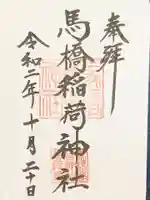 奉拝
馬橋稲荷神社
令和二年十月二十日